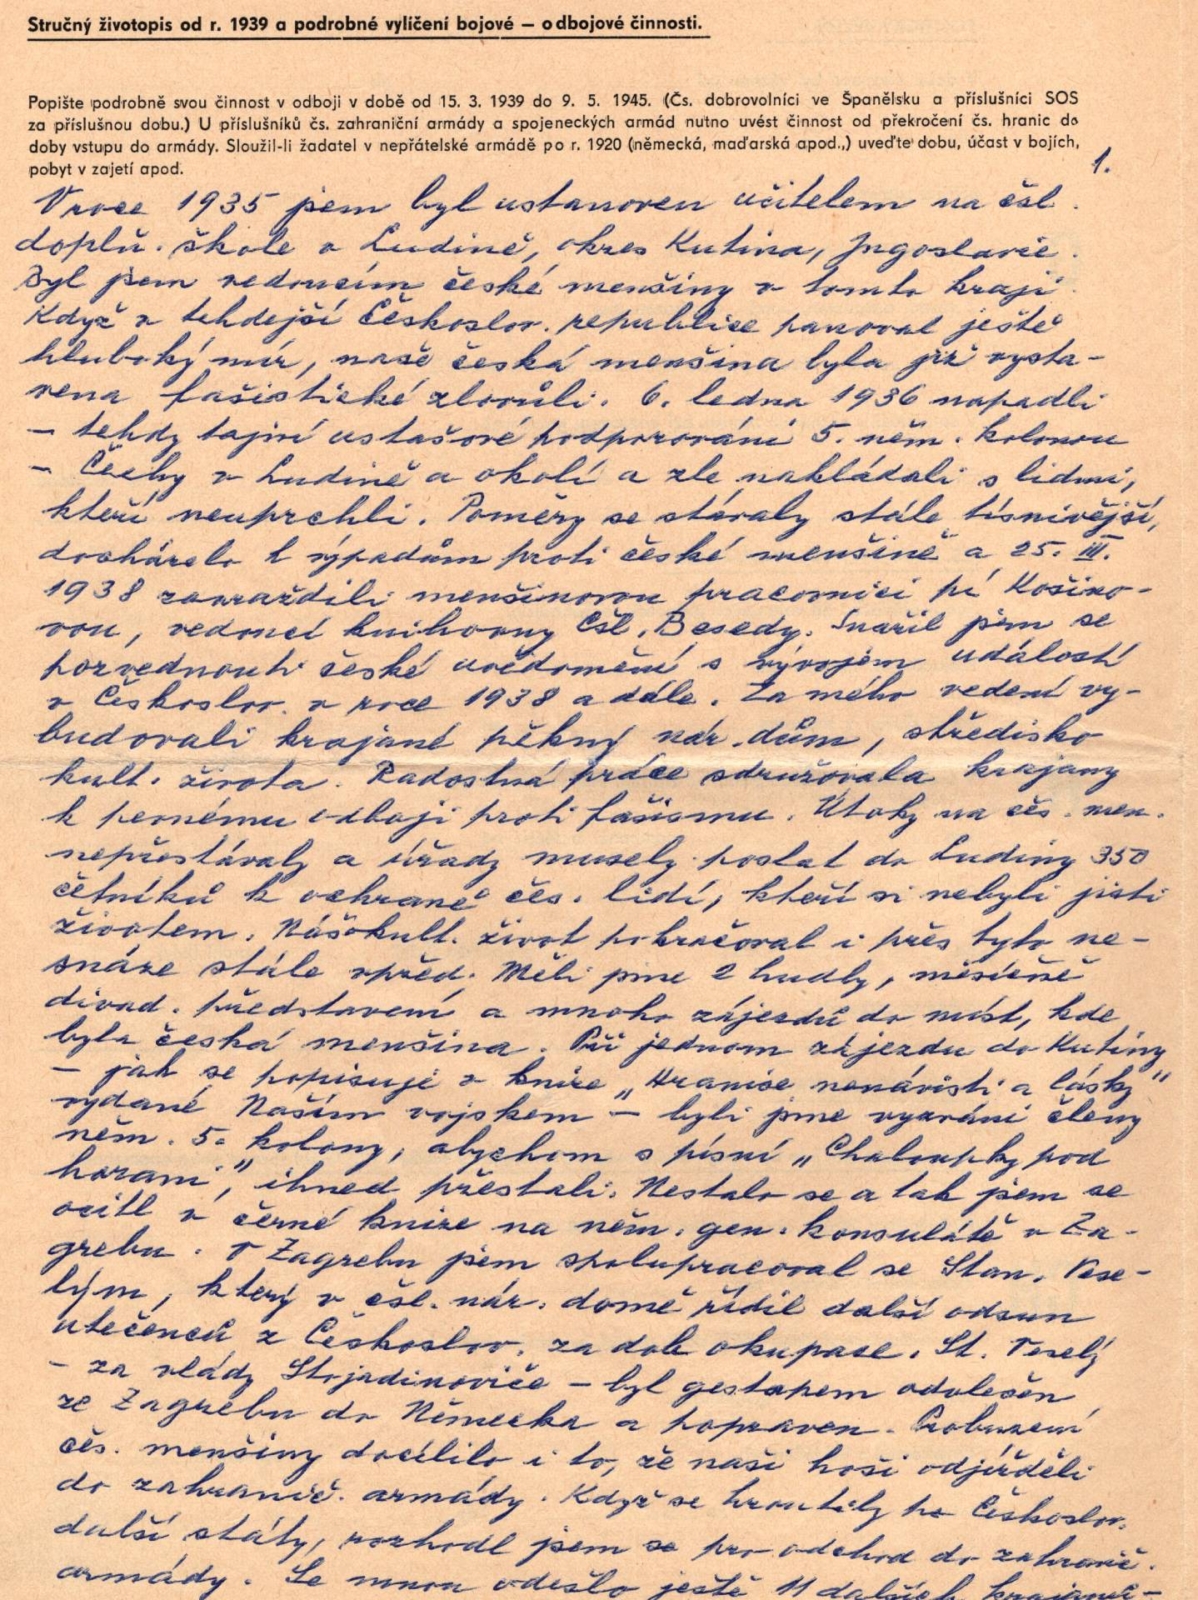 Stručný životopis od r. 1939 a podrobné vylíčení bojové — odbojové činnosti.
Popište podrobně svou činnost v odboji v době od 15. 3. 1939 do 9. 5. 1945. (Čs. dobrovolníci ve Španělsku a příslušníci SOS
za příslušnou dobu.) U příslušníků čs. zahraniční armády a spojeneckých armád nutno uvést činnost od překročení čs. hranic do
doby vstupu do armády. Sloužil-li žadatel v nepřátelské armádě po r. 1920 (německá, maďarská apod.,) uveďte dobu, účast v bojích,
pobyt v zajetí apod.
1.
V roce 1935 jsem byl ustanoven učitelem na čsl.
doplň. škole v Ludině, okres Kutina, Jugoslavie.
Byl jsem vedoucím české menšiny v tomto kraji.
Když v tehdejší Českoslov. republice panoval ještě
hluboký mír, naše česká menšina byla již vysta-
vena fašistické zlovůli. 6. ledna 1936 napadli
– tehdy tajní ustašové podporováni 5. něm. kolonou
– Čechy v Ludině a okolí a zle nakládali s lidmi,
kteří neuprchli. Poměry se stávaly stále tísnivější,
docházelo k výpadům proti české menšině a 25. III.
1938 zavraždili menšinovou pracovnici pí Košino-
vou, vedoucí knihovny Čsl. Besedy. Snažil jsem se
pozvednouti české uvědomění s vývojem událostí
v Českoslov. v roce 1938 a dále. Za mého vedení vy-
budovali krajané pěkný nár. dům, středisko
kult. života. Radostná práce sdružovala krajany
k pevnému odboji proti fašismu. Útoky na čes. men.
nepřestávaly a úřady musely poslat do Ludiny 350
četníků k ochraně čes. lidí, kteří si nebyli jisti
životem. Náš kult. život pokračoval i přes tyto ne-
snáze stále vpřed. Měli jsme 2 hudby, měsíčně
divad. představení a mnoho zájezdů do míst, kde
byla česká menšina. Při jednom zájezdu do Kutiny
– jak se popisuje v knize „Hranice nenávisti a lásky"
vydané Naším vojskem – byli jsme vyzváni členy
něm. 5. kolony, abychom s písní „Chaloupky pod
horami", ihned přestali. Nestalo se a tak jsem se
ocitl v černé knize na něm. gen. konsulátě v Za-
grebu. V Zagrebu jsem spolupracoval se Stan. Vese-
lým, který v čsl. nár. domě řídil další odsun
utečenců z Českoslov. za dob okupace. St. Veselý
– za vlády Stojadinoviče – byl gestapem odvlečen
ze Zagrebu do Německa a popraven. Probuzení
čes. menšiny docílilo i to, že naši hoši odjížděli
do zahranič. armády. Když se hroutily po Českoslov.
další státy, rozhodl jsem se pro odchod do zahranič.
armády. Se mnou odešlo ještě 11 dalších krajanů –